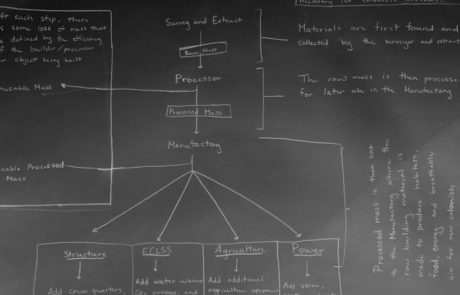 necessary for
At each step, there
is some loss of mass that
is defined by the efficiency
of the builder/processor
or object being built
Survey and Extract
Materials are first found and
collected by the surveyor and
Raw Mass
Processor
Unusable Mass
The raw mass is then processed
for later use in the Manufactory
Processed Mass
Manufactory
Unusable Processed
Mass
Processed mass is then sent
to the Manufactory where the
raw building material is
made to produce habitats,
food, energy and breathable
air for new colonists
Structure
Add crew quarters,
ECLSS
Add water
and
Agriculture
Add additional
agriculture
Power
Add solar,